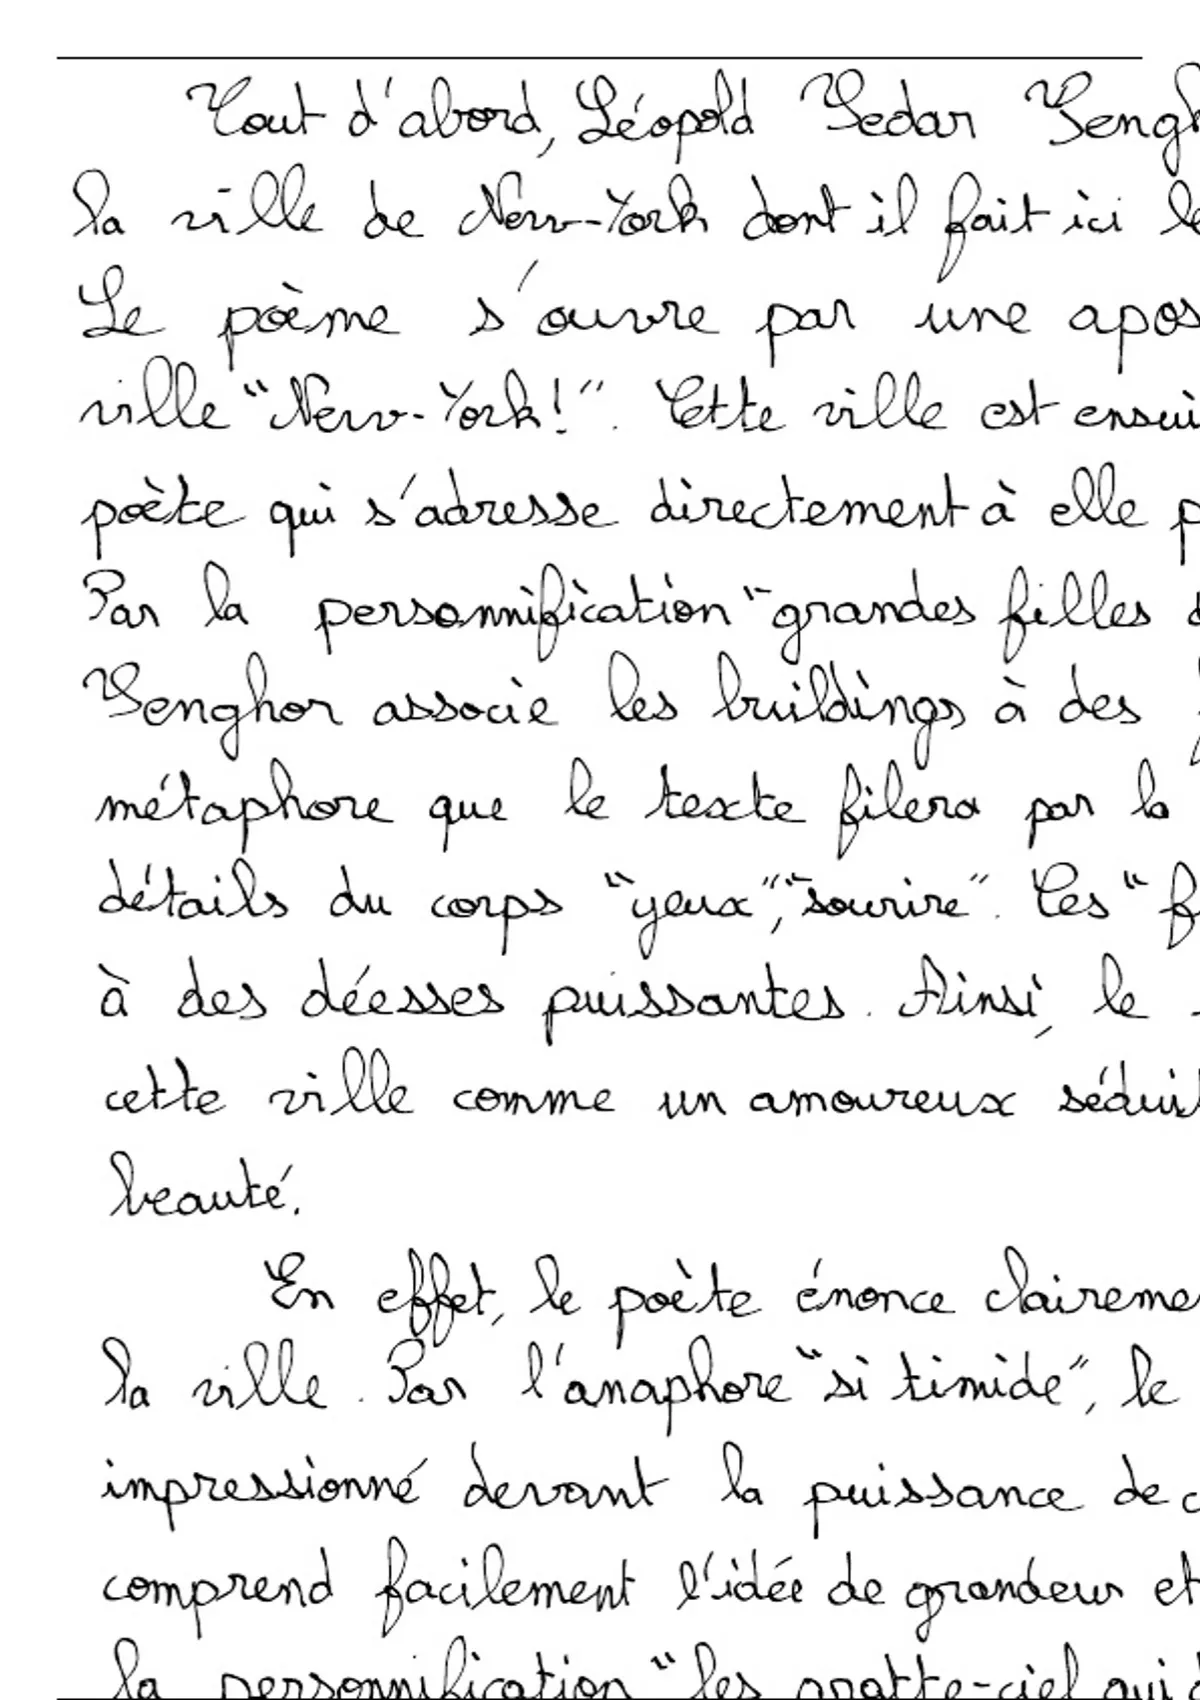 Tout d'abord, Léopold Sedar Sengh
la ville de New-York dont il fait ici le
Le poème s'ouvre par une apos
ville "New-York!". Cette ville est ensui
poète qui s'adresse directement à elle p
Par la personnification "grandes filles d
Senghor associe les buildings à des
métaphore que le texte filera par la
détails du corps "yeux", "sourire". Ces "f
à des déesses puissantes. Ainsi, le
cette ville comme un amoureux séduit
beauté.
En effet, le poète énonce claireme
la ville. Par l'anaphore "si timide", le
impressionné devant la puissance de c
comprend facilement l'idée de grandeur et
la personnification "les gratte-ciel qui d